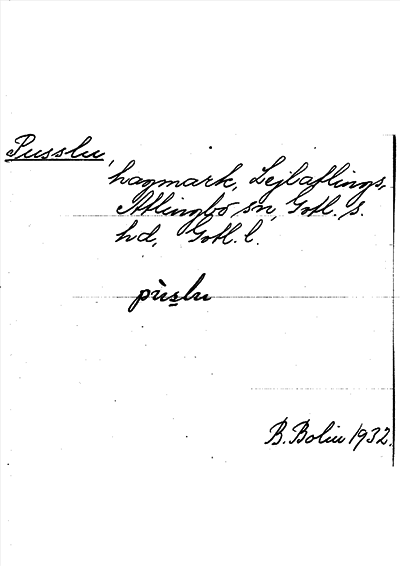 Pusslu,
hagmark, Lejbaflings,
Atlingbo sn, Gotl. s.
hd, Gotl. l.
pùs̲lu
B. Bolin 1932.